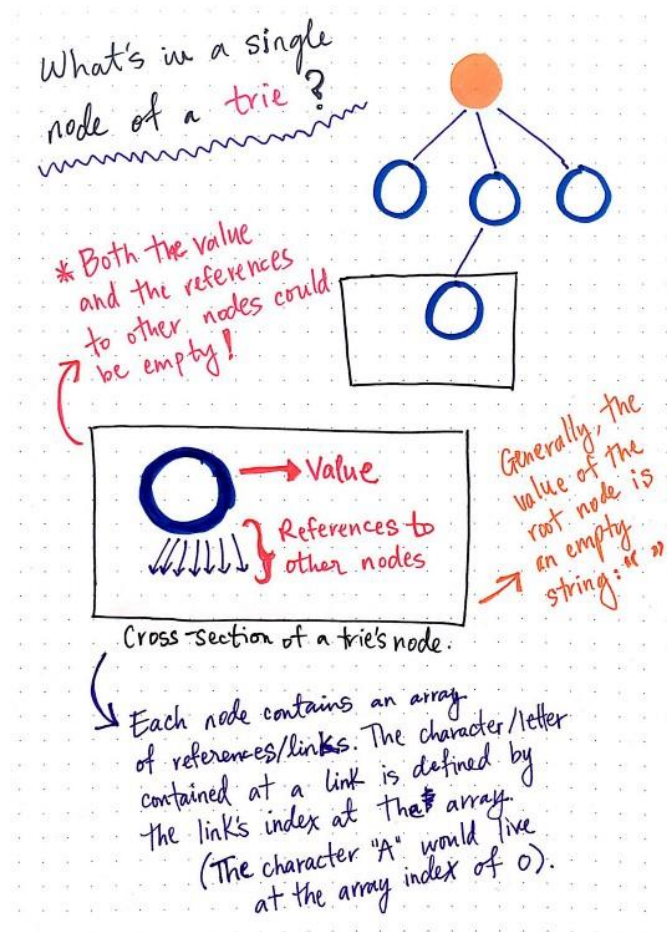 What's in a single
node of a trie?
* Both the value
and the references
to other nodes could
be empty!
Value
References to
other nodes
Generally, the
value of the
root node is
an empty
string: " "
Cross-section of a trie's node.
Each node contains an array
of references/links. The character/letter
contained at a link is defined by
the link's index at that array.
(The character "A" would live
at the array index of 0).